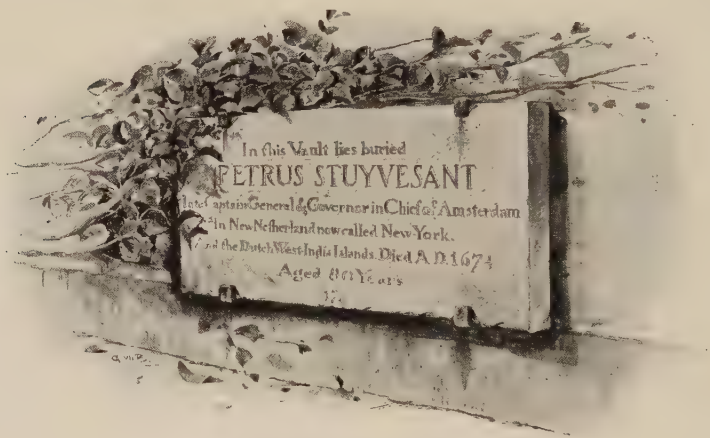 In this Vault lies buried
PETRUS STUYVESANT
late Captain General & Governor in Chief of Amsterdam
In New Netherland now called New-York.
And the Dutch West-India Islands. Died A.D. 1672
Aged 80 Years